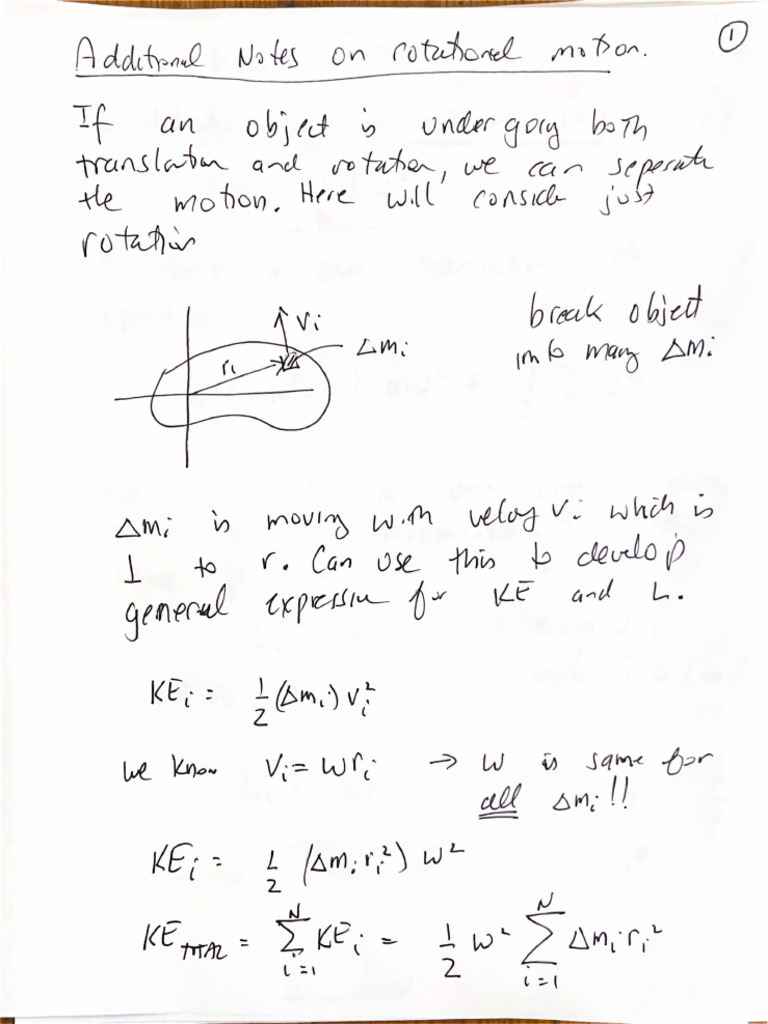 ①
Additional Notes on rotational motion.
If an object is undergoing both
translation and rotation, we can seperate
the motion. Here will consider just
rotation
break object
into many Δmi
vi
ri
Δmi
Δmi is moving with velocity vi which is
⊥ to r. Can use this to develop
general expression for KE and L.
KEi = 1/2 (Δmi) vi²
we know vi = ωri → ω is same for
all Δmi!!
KEi = 1/2 (Δmi ri²) ω²
KETOTAL = Σ(i=1 to N) KEi = 1/2 ω² Σ(i=1 to N) Δmi ri²